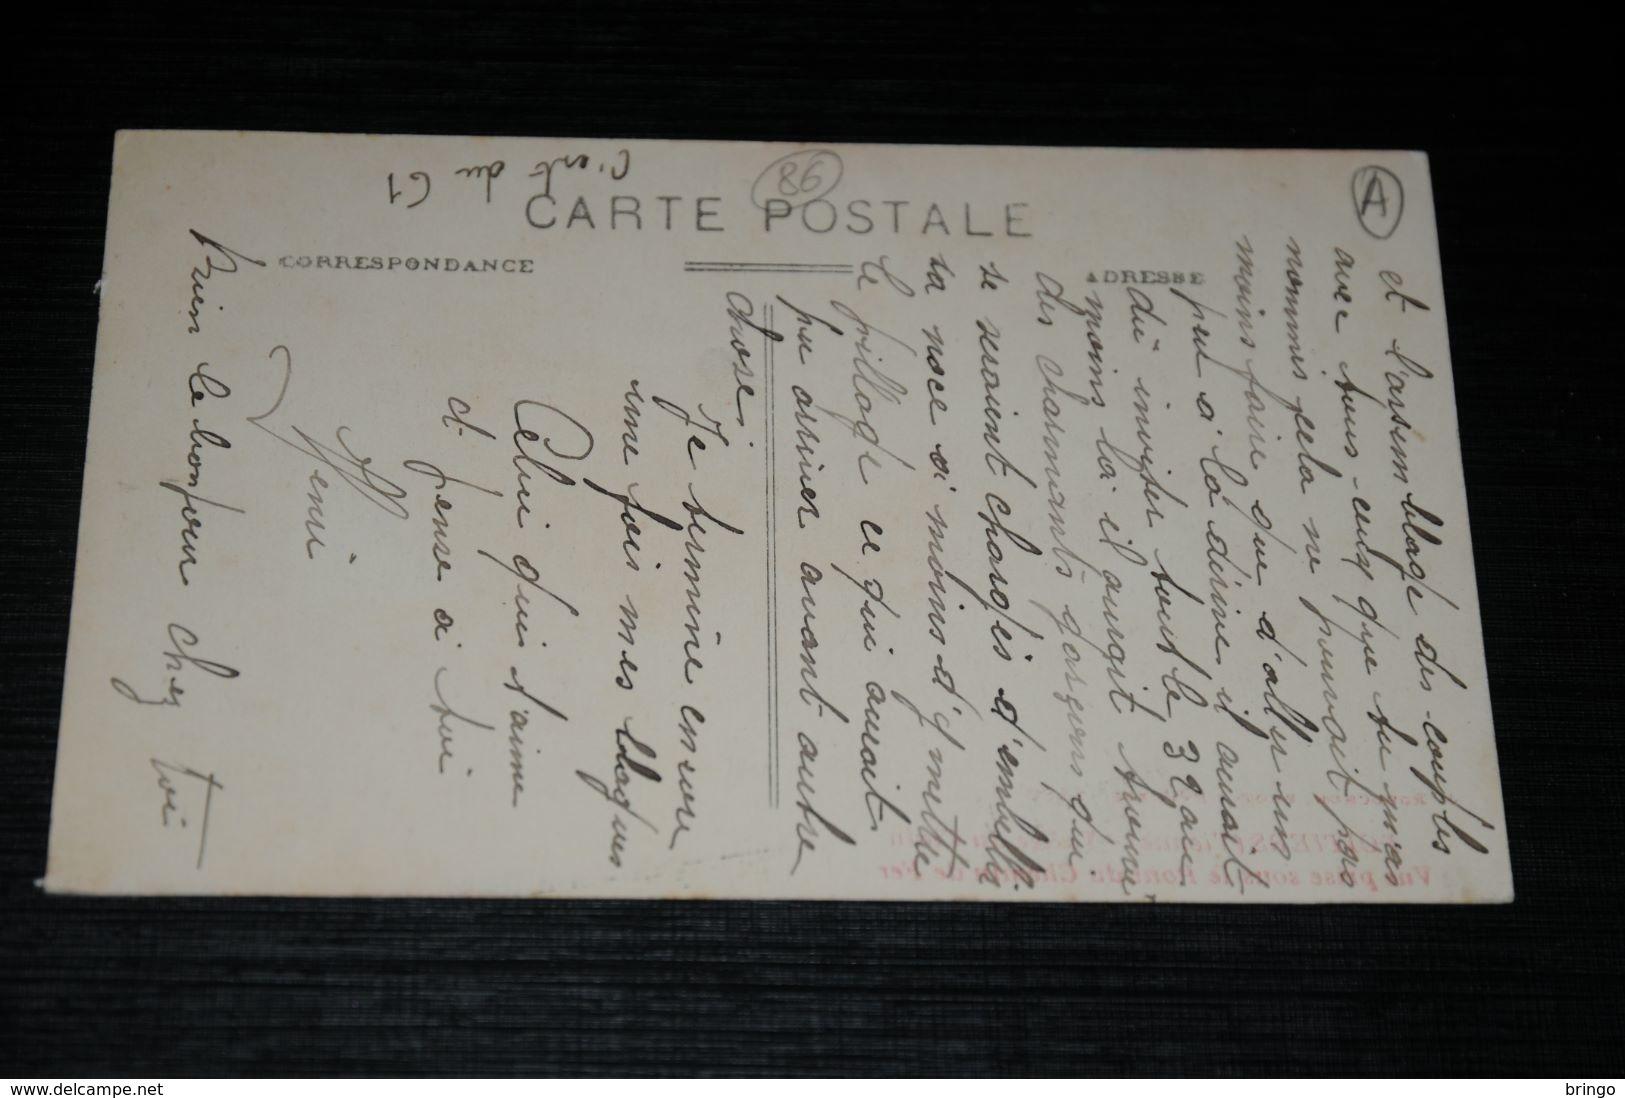 C'est du 61
86
A
CARTE POSTALE
CORRESPONDANCE
ADRESSE
et l'assemblage des couples
avec tous ceux que tu m'as
nommés cela ne pouvait pas
moins faire que d'aller un
peu à la dérive, il aurait
dû inviter tout le 32 au
moins là il aurait trouvé
des charmants garçons qui
se seraient chargés d'embellir
sa noce à moins d'y mettre
le pillage ce qui aurait
pu arriver avant autre
chose.
Je termine encore
une fois mes blagues
Celui qui t'aime
et pense à toi
Henri
Bien le bonjour chez toi
Vue prise sous le Pont du
delcampe.net
bringo